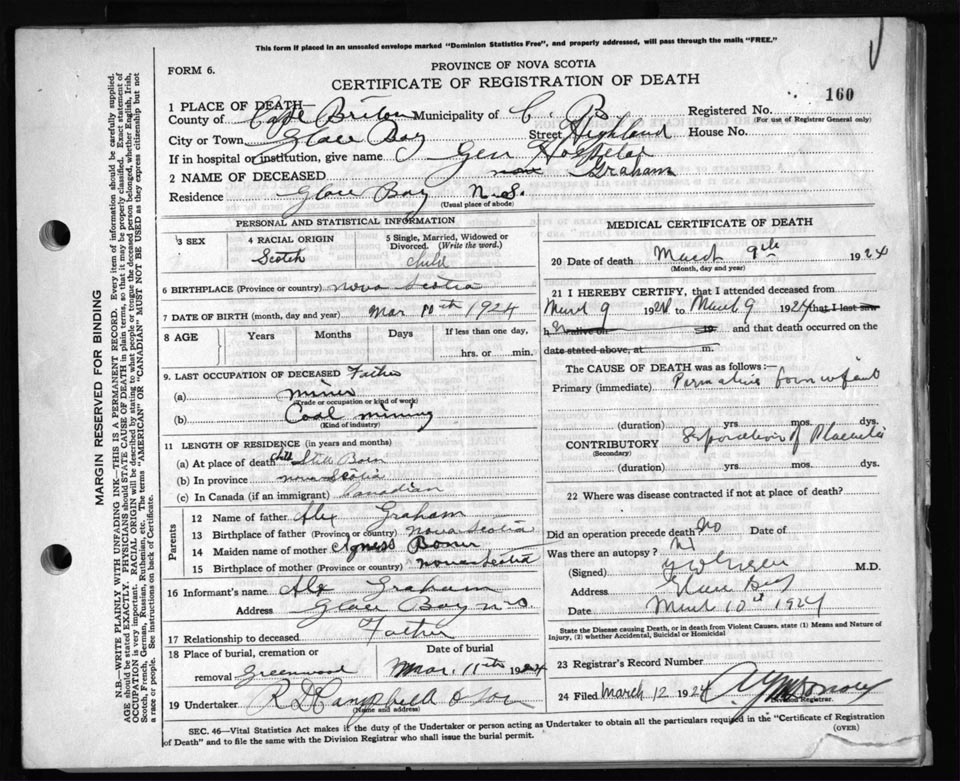 This form if placed in an unsealed envelope marked "Dominion Statistics Free", and properly addressed, will pass through the mails "FREE."
FORM 6.
PROVINCE OF NOVA SCOTIA
CERTIFICATE OF REGISTRATION OF DEATH
160
1 PLACE OF DEATH—
County of Cape Briton Municipality of C. B Registered No.
(For use of Registrar General only)
City or Town Glace Bay Street Highland House No.
If in hospital or institution, give name Gen Hospital
2 NAME OF DECEASED Graham
Residence Glace Bay N.S.
(Usual place of abode)
PERSONAL AND STATISTICAL INFORMATION
3 SEX
4 RACIAL ORIGIN
Scotch
5 Single, Married, Widowed or Divorced. (Write the word.)
child
6 BIRTHPLACE (Province or country) Nova Scotia
7 DATE OF BIRTH (month, day and year) Mar 10th 1924
8 AGE Years Months Days If less than one day,
hrs. or min.
9. LAST OCCUPATION OF DECEASED Father
(a) miner
(Trade or occupation or kind of work)
(b) Coal mining
(Kind of industry)
11 LENGTH OF RESIDENCE (in years and months)
(a) At place of death Still Born
(b) In province nova Scotia
(c) In Canada (if an immigrant) Canadian
Parents
12 Name of father Alex Graham
13 Birthplace of father (Province or country) Nova Scotia
14 Maiden name of mother Agness
15 Birthplace of mother (Province or country) nova Scotia
16 Informant's name Alex Graham
Address Glace Bay n.s.
17 Relationship to deceased Father
18 Place of burial, cremation or removal Greenwood
Date of burial
Mar. 11th 1924
19 Undertaker R D Campbell & Son
(Name and address)
MEDICAL CERTIFICATE OF DEATH
20 Date of death March 9th 1924
(Month, day and year)
21 I HEREBY CERTIFY, that I attended deceased from
March 9 1924 to March 9 1924 that I last saw
h er alive on 19 and that death occurred on
date stated above, at m.
The CAUSE OF DEATH was as follows:—
Primary (immediate) born infant
(duration) yrs. mos. dys.
CONTRIBUTORY Separation of Placenta
(Secondary)
(duration) yrs. mos. dys.
22 Where was disease contracted if not at place of death?
Did an operation precede death? No Date of
Was there an autopsy?
(Signed) M.D.
Address Glace Bay
Date March 10th 1924
State the Disease causing Death, or in death from Violent Causes, state (1) Means and Nature of Injury, (2) whether Accidental, Suicidal or Homicidal
23 Registrar's Record Number
24 Filed March 12 1924
Division Registrar.
SEC. 46—Vital Statistics Act makes it the duty of the Undertaker or person acting as Undertaker to obtain all the particulars required in the "Certificate of Registration
of Death" and to file the same with the Division Registrar who shall issue the burial permit.
(OVER)
MARGIN RESERVED FOR BINDING
N.B.—WRITE PLAINLY WITH UNFADING INK—THIS IS A PERMANENT RECORD. Every item of information should be carefully supplied.
AGE should be stated EXACTLY. PHYSICIANS should STATE CAUSE OF DEATH in plain terms, so that it may be properly classified. Exact statement of
OCCUPATION is very important. RACIAL ORIGIN will be described by stating to what people or tongue the deceased person belonged, whether English, Irish,
Scotch, French, German, Russian, Ruthenian, etc. The terms "AMERICAN" OR "CANADIAN" MUST NOT BE USED as they express citizenship but not
a race or people. See instructions on back of Certificate.